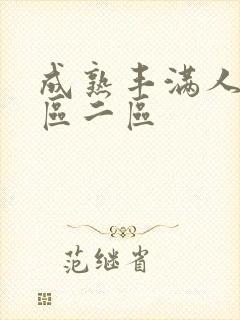 成熟丰满人
區二區
范继省